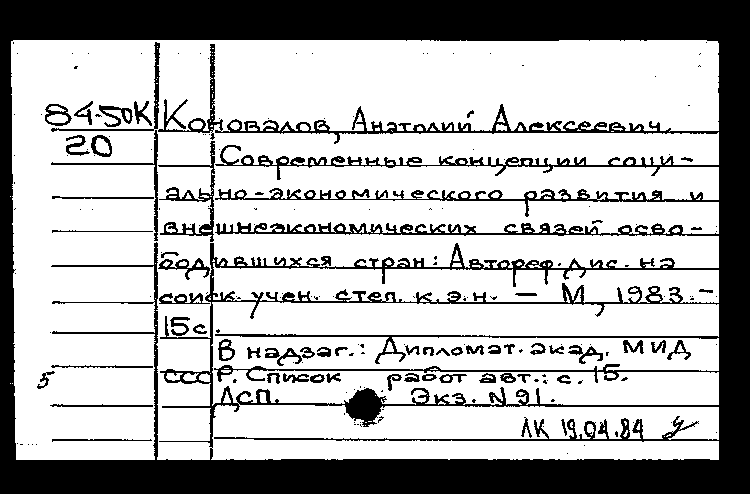 84-50К Коновалов, Анатолий Алексеевич.
20 Современные концепции соци-
ально-экономического развития и
внешнеэкономических связей осво-
бодившихся стран: Автореф. дис. на
соиск. учен. степ. к.э.н. — М., 1983. -
15с.
В надзаг.: Дипломат. акад. МИД
5 СССР. Список работ авт.: с. 15.
Дсп. Экз. N 91.
ЛК 19.04.84